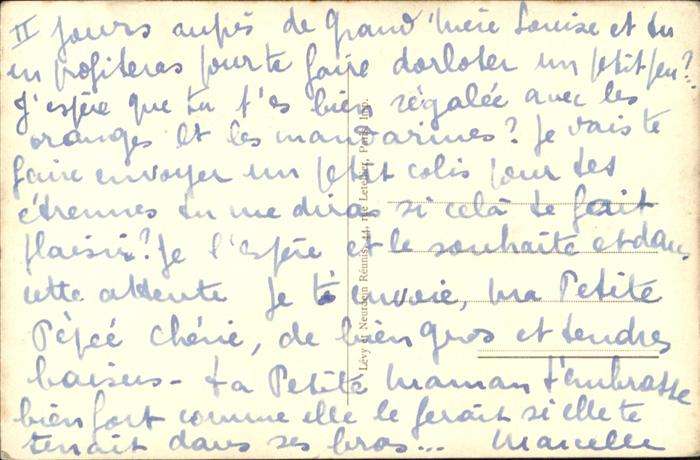 II jours auprès de Grand'Mère Louise et tu
en profiteras pour te faire dorloter un petit peu?..
J'espère que tu t'es bien régalée avec les
oranges et les mandarines? Je vais te
faire envoyer un petit colis pour tes
étrennes tu me diras si celà te fait
plaisir? Je l'espère et le souhaite et dans
cette attente je t'envoie, ma Petite
chérie, de bien gros et tendres
baisers - ta Petite Maman t'embrasse
bien fort comme elle le ferait si elle te
tenait dans ses bras... Marcelle
Lévy et Neurdein Réunis, 44, rue Letellier, Paris Imp.